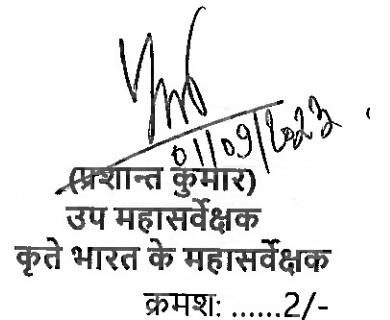 01/09/2023
(प्रशान्त कुमार)
उप महासर्वेक्षक
कृते भारत के महासर्वेक्षक
क्रमश: ......2/-